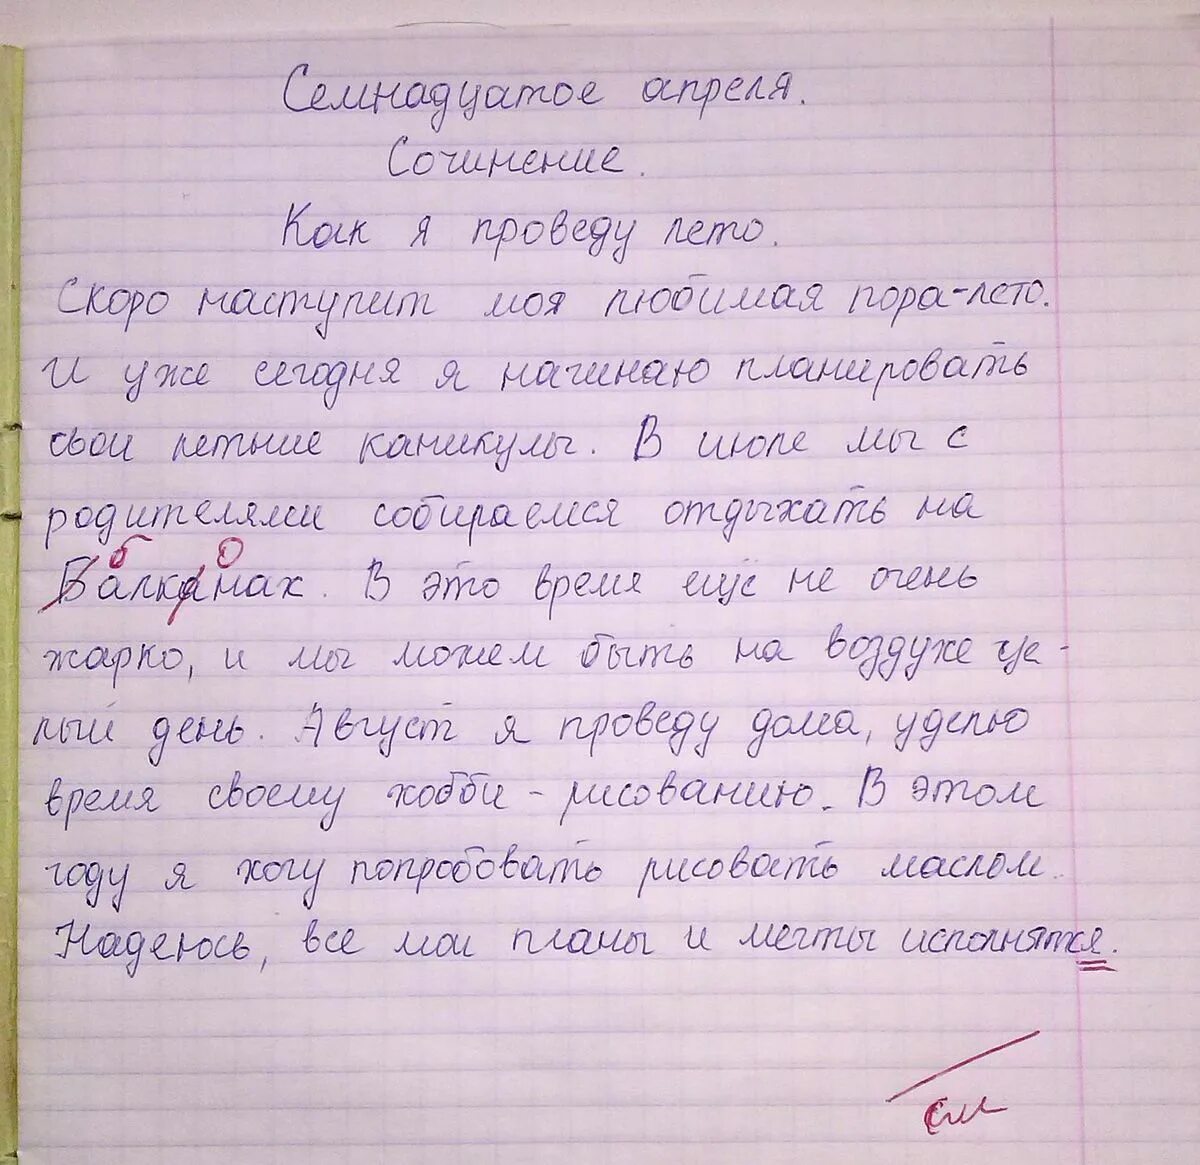 Семнадцатое апреля.
Сочинение.
Как я проведу лето.
Скоро наступит моя любимая пора-лето.
И уже сегодня я начинаю планировать
свои летние каникулы. В июле мы с
родителями собираемся отдыхать на
б о
Балканах. В это время ещё не очень
жарко, и мы можем быть на воздухе це-
лый день. Август я проведу дома, уделю
время своему хобби - рисованию. В этом
году я хочу попробовать рисовать маслом.
Надеюсь, все мои планы и мечты исполнятся.
см